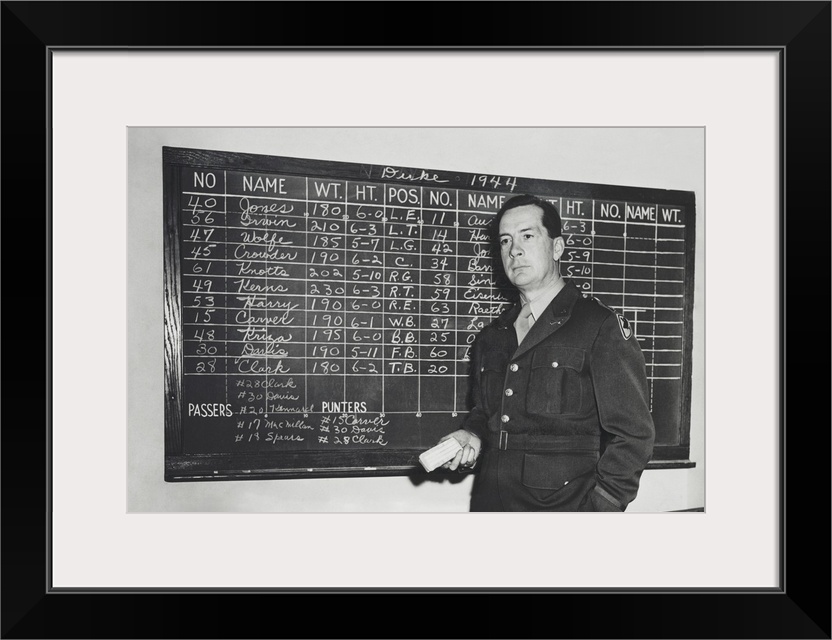 Duke - 1944
NO NAME WT. HT. POS. NO. NAME HT. NO. NAME WT.
40 Jones 180 6-0 L.E. 11 6-3
56 Irwin 210 6-3 L.T. 14 Ha 6-0
47 Wolfe 185 5-7 L.G. 42 Jo 5-9
45 Crowder 190 6-2 C. 34 5-10
61 Knotts 202 5-10 R.G. 58 Sin
49 Kerns 230 6-3 R.T. 59
53 Harry 190 6-0 R.E. 63
15 Carver 190 6-1 W.B. 27
48 Kriza 195 6-0 B.B. 25
30 Davis 190 5-11 F.B. 60
28 Clark 180 6-2 T.B. 20
PASSERS
#28 Clark
#30 Davis
#20
#17 MacMillan
#13 Spears
PUNTERS
#15 Carver
#30 Davis
#28 Clark